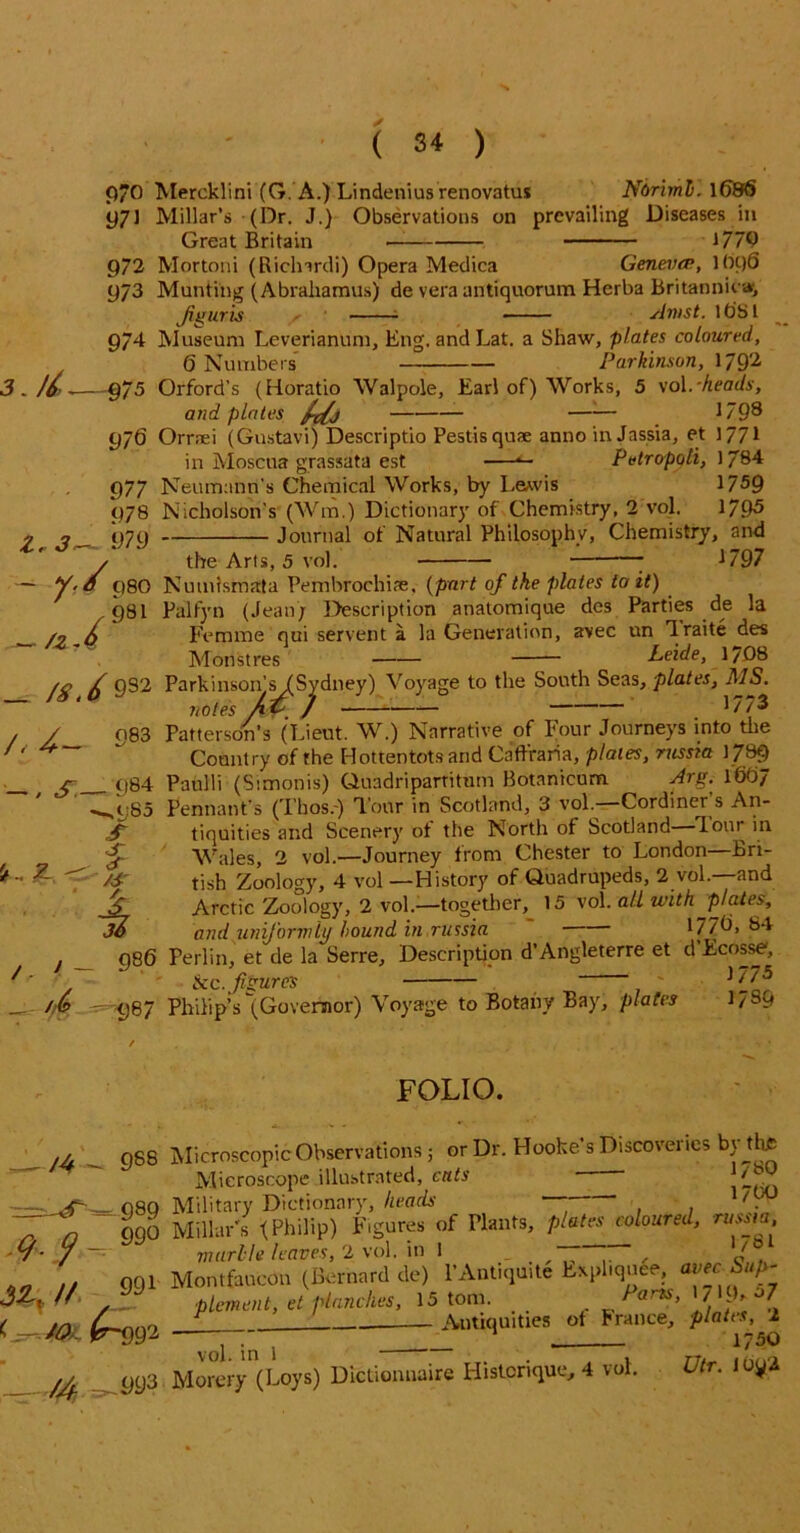 ( 34 )
970 Mercklini (G. A.) Lindenius renovatus Nòrimb. 1686
971 Millar's (Dr. J.) Observations on prevailing Diseases in
Great Britain 1770
972 Mortoni (Richardi) Opera Medica Genevæ, 1696
973 Munting (Abrahamus) de vera antiquorum Herba Britannica,
figuris Amst. 1681
974 Museum Leverianum, Eng. and Lat. a Shaw, plates coloured,
6 Numbers Parkinson, 1792
3. 16 975 Orford's (Horatio Walpole, Earl of) Works, 5 vol. heads,
and plates 1798
976 Orræi (Gustavi) Descriptio Pestis quæ anno in Jassia, et 1771
in Moscua grassata est Petropoli, 1784
977 Neumann's Chemical Works, by Lewis 1759
978 Nicholson's (Wm.) Dictionary of Chemistry, 2 vol. 1795
2. 3 979 Journal of Natural Philosophy, Chemistry, and
the Arts, 5 vol. 1797
980 Numismata Pembrochiæ, (part of the plates to it)
981 Palfyn (Jean) Description anatomique des Parties de la
12. 6 Femme qui servent à la Generation, avec un Traité des
Monstres Leide, 1708
18. 6 982 Parkinson's (Sydney) Voyage to the South Seas, plates, MS.
notes 1773
1. 4 983 Patterson's (Lieut. W.) Narrative of Four Journeys into the
Country of the Hottentots and Caffraria, plates, russia 1789
5 984 Paulli (Simonis) Quadripartitum Botanicum Arg. 1667
985 Pennant's (Thos.) Tour in Scotland, 3 vol.—Cordiner's An-
tiquities and Scenery of the North of Scotland—Tour in
Wales, 2 vol.—Journey from Chester to London—Bri-
tish Zoology, 4 vol—History of Quadrupeds, 2 vol.—and
Arctic Zoology, 2 vol.—together, 15 vol. all with plates,
36 and uniformly bound in russia 1776, 84
986 Perlin, et de la Serre, Description d'Angleterre et d'Ecosse,
&c. figures 1775
987 Philip's (Governor) Voyage to Botany Bay, plates 1789
FOLIO.
14 988 Microscopic Observations; or Dr. Hooke's Discoveries by the
Microscope illustrated, cuts 1780
5 989 Military Dictionary, heads 1760
990 Millar's (Philip) Figures of Plants, plates coloured, russia,
9. 9 marble leaves, 2 vol. in 1 1781
32. 11 991 Montfaucon (Bernard de) l'Antiquité Expliquée, avec Sup-
plement, et planches, 15 tom. Paris, 1719, 57
992 Antiquities of France, plates, 2
vol. in 1 1750
14 993 Morery (Loys) Dictionnaire Historique, 4 vol. Utr. 1692